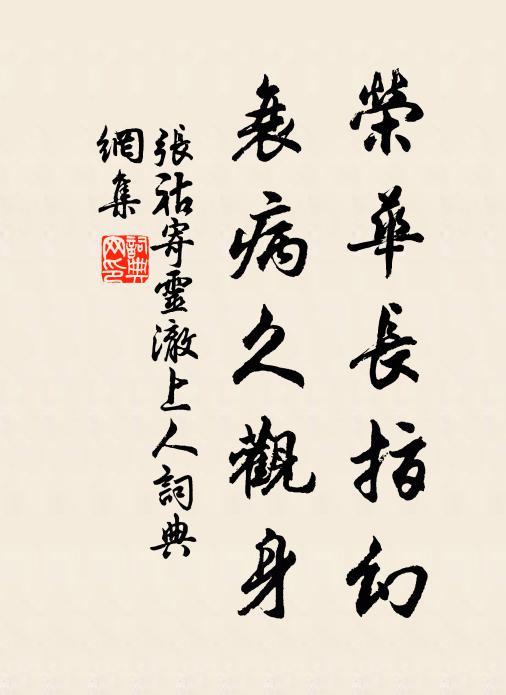 榮華長指幻
衰病久觀身
張祜寄靈澈上人詞典
網集
詞典
网印